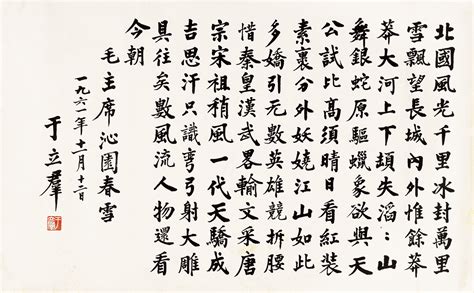 北國風光千里冰封萬里
雪飄望長城內外惟餘莽
莽大河上下頓失滔〻山
舞銀蛇原驅蠟象欲與天
公試比高須晴日看紅裝
素裹分外妖嬈江山如此
多嬌引无數英雄競折腰
惜秦皇漢武畧輸文采唐
宗宋祖稍風一代天驕成
吉思汗只識彎弓射大雕
具往矣數風流人物還看
今朝
毛主席沁園春雪
一九六一年十一月十二日
于立羣